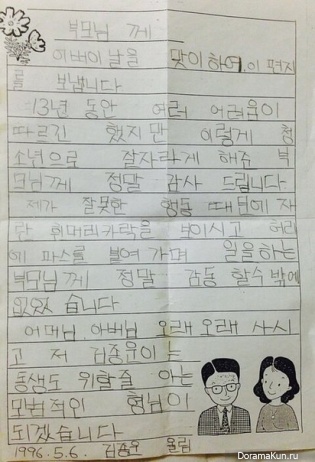 부모님 께
어버이날을 맞이하여 이 편지
를 보냅니다
13년 동안 여러 어려움이
따르긴 했지만 이렇게 청
소년으로 잘자라게 해준 부
모님께 정말 감사 드립니다
제가 잘못한 행동 때문에 자
란 흰머리카락을 보이시고 허리
에 파스를 붙여가며 일을하는
부모님께 정말 감동 할수밖에
없었습니다
어머님 아버님 오래오래 사시
고 저 김종운이는
동생도 위할줄 아는
모범적인 형님이
되겠습니다
1996.5.6. 김종운 올림
DoramaKun.ru